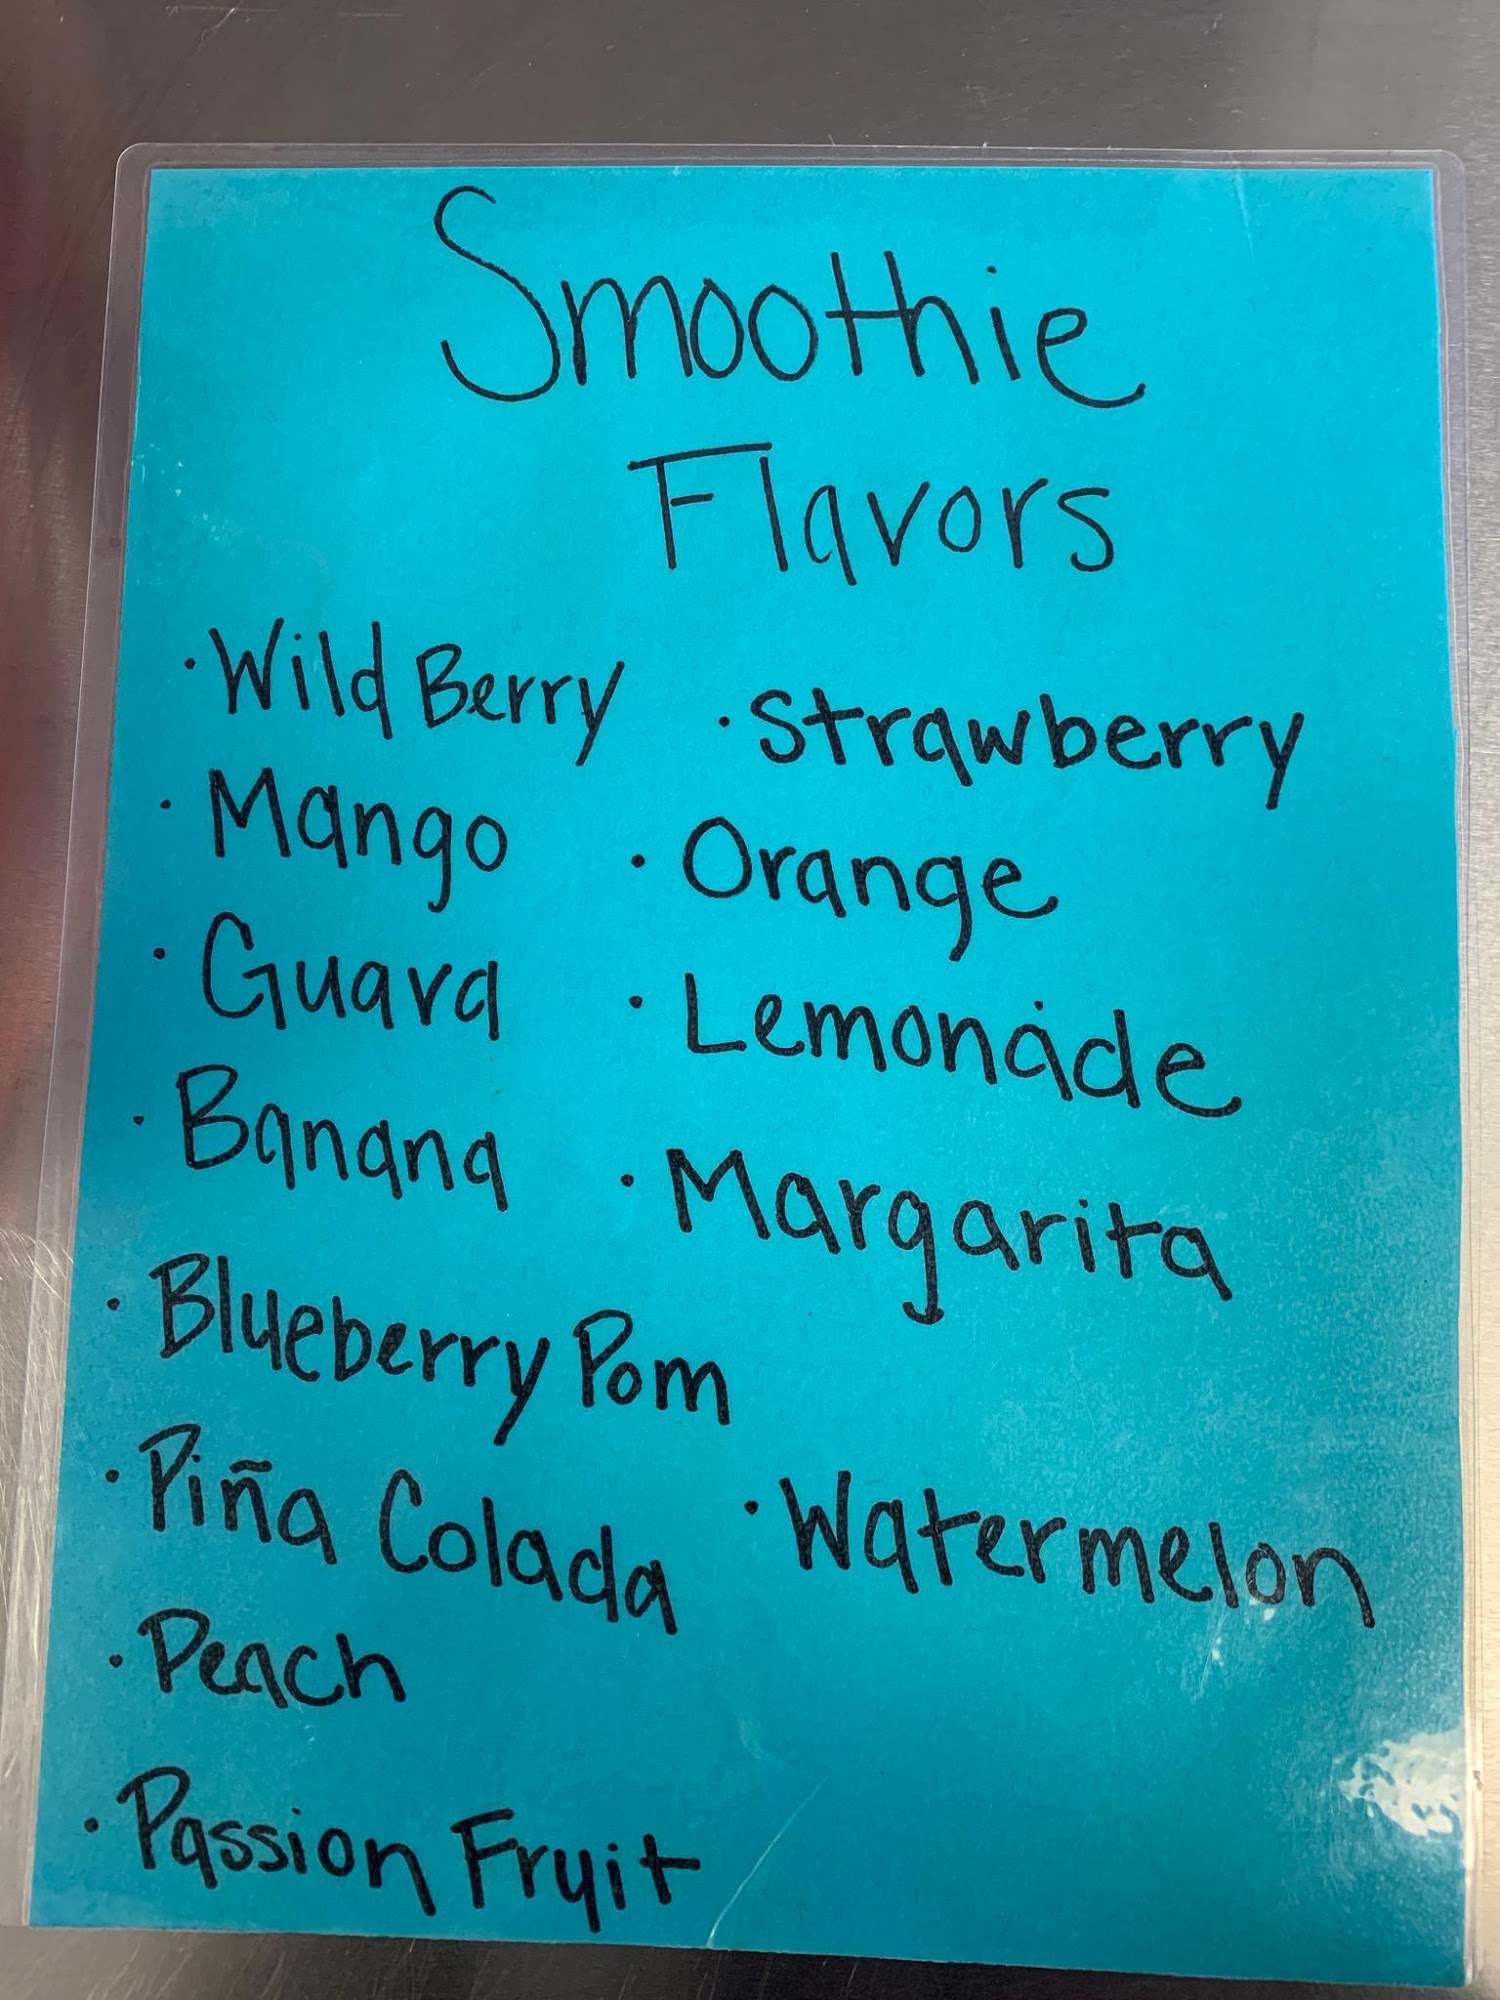 Smoothie
Flavors
· Wild Berry
· Strawberry
· Mango
· Orange
· Guava
· Lemonade
· Banana
· Margarita
· Blueberry Pom
· Piña Colada
· Watermelon
· Peach
· Passion Fruit